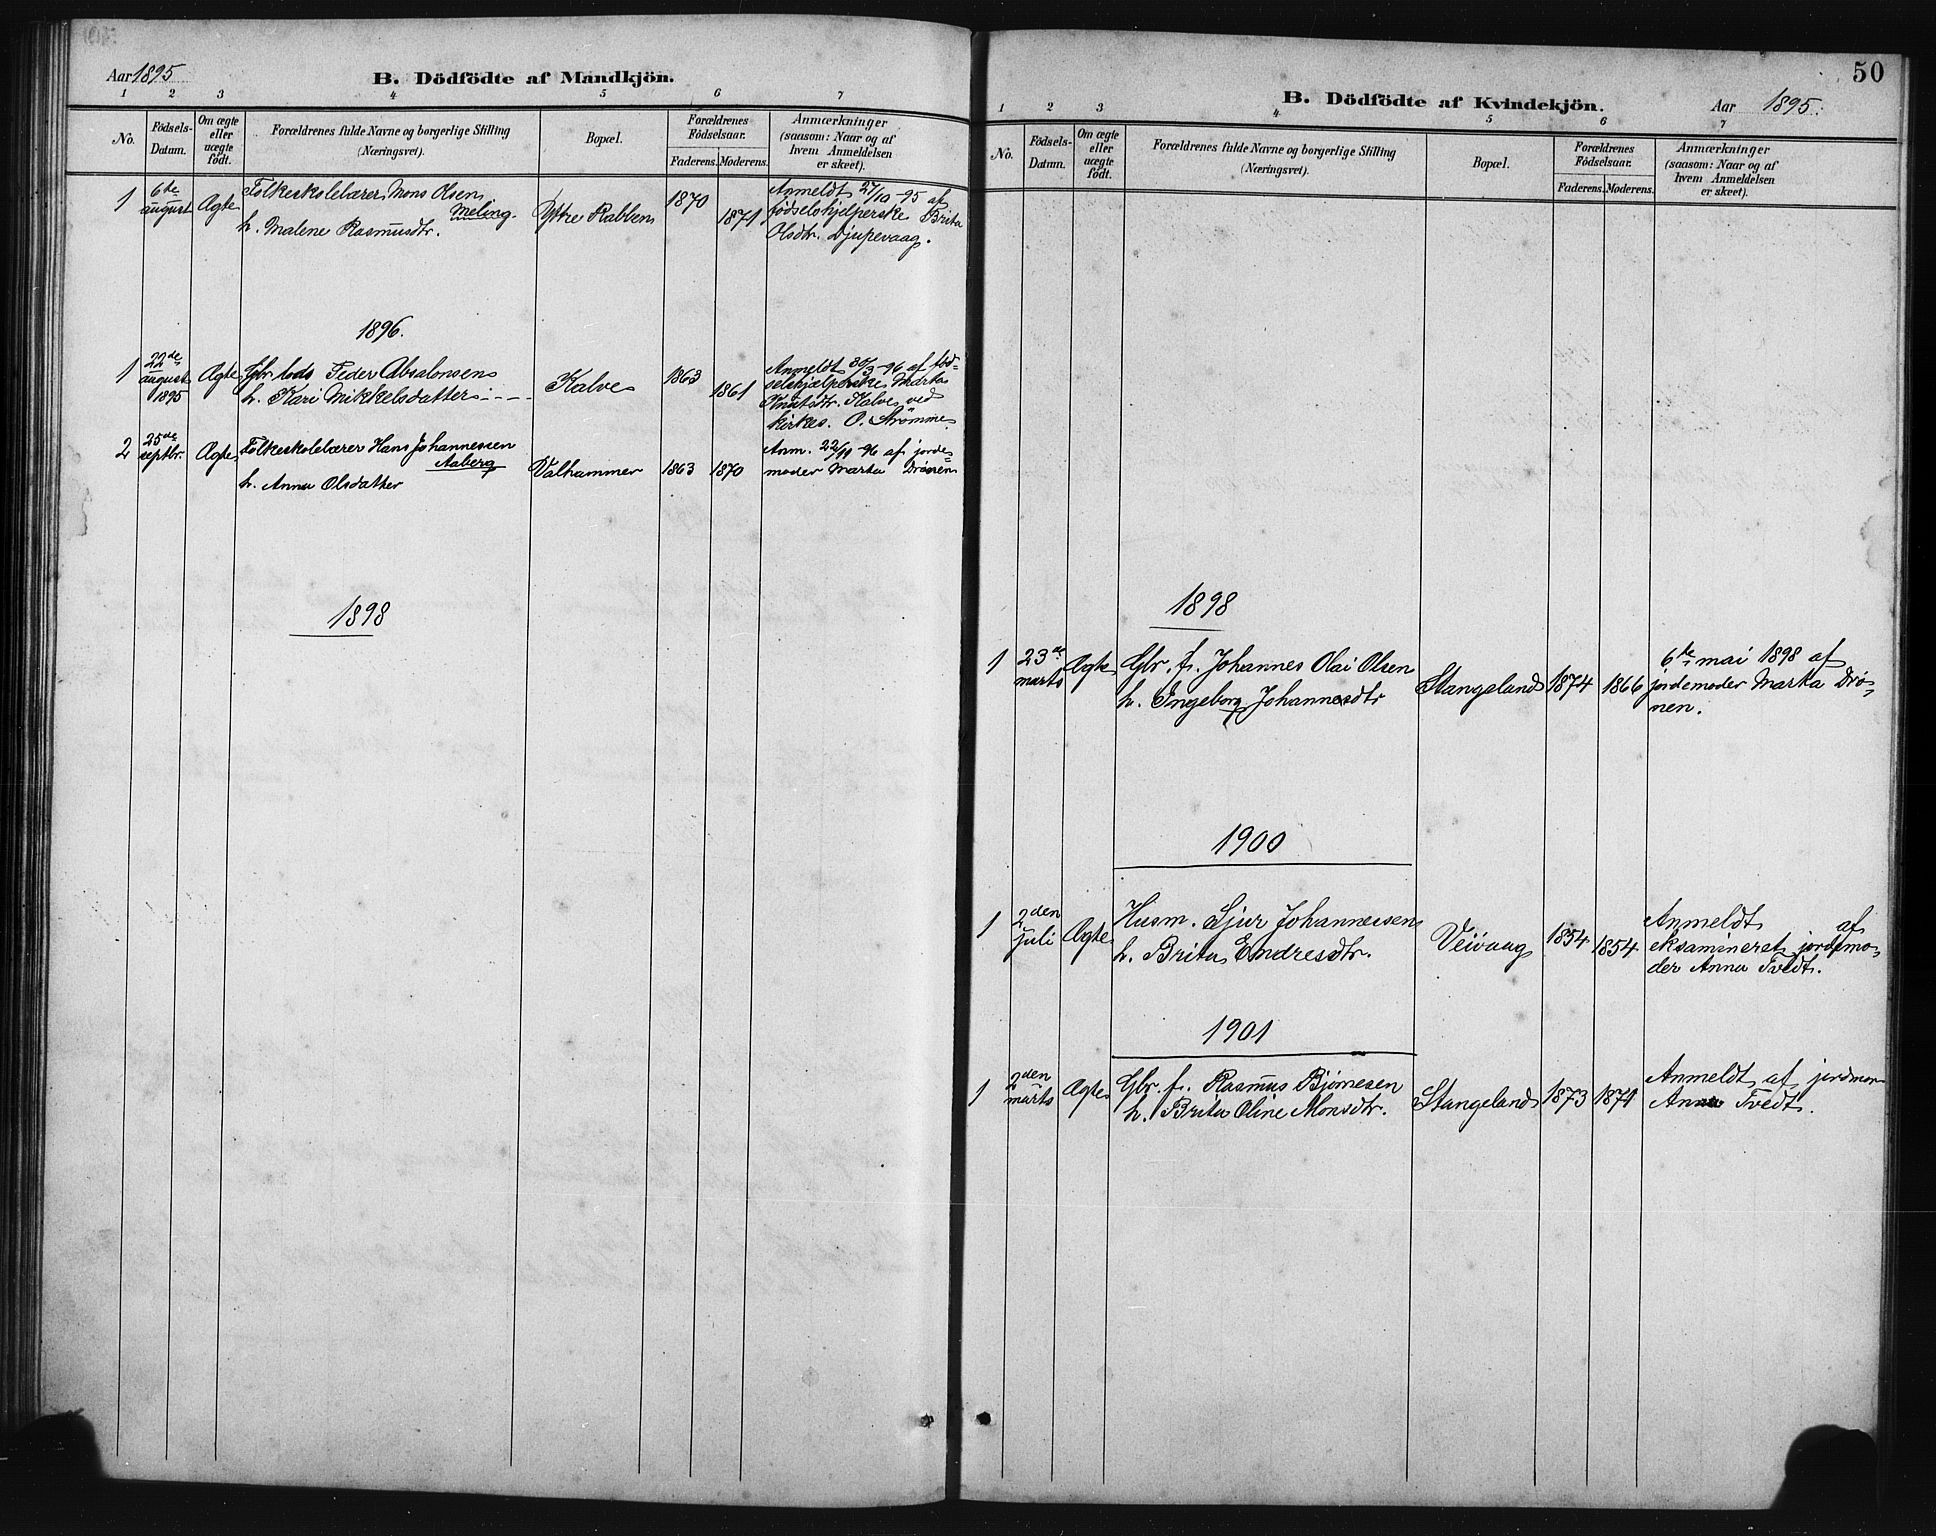 Aar 1895
B. Dödfödte af Mandkjön.
1 2 3 4 5 6 7
No.
Födsels-
Datum.
Om ægte
eller
uægte
födt.
Forældrenes fulde Navne og borgerlige Stilling
(Næringsvei).
Bopæl.
Forældrenes
Födselsaar.
Faderens. Moderens.
Anmærkninger
(saasom: Naar og af
hvem Anmeldelsen
er skeet).
1 6te august Ægte Folkeskolelærer Mons Olsen
Meling.
h. Malene Rasmusdtr.
Ytre Rabben 1870 1871
Anmeldt 27/10 -95 af
fødselshjelperske Brita
Olsdtr. Djupevaag.
1896.
1 22de august 1895 Ægte Gbr. lods Peder Absalonsen
h. Kari Mikkelsdatter
Kalve 1863 1861
Anmeldt 30/3 -96 af fød-
selshjælperske Marta
Knutsdtr. Kalve ved
kirkes. O. Strømme.
2 25de septbr. Ægte Folkeskolelærer Hans Johannessen
Aaberg
h. Anna Olsdatter
Valhammer 1863 1870
Anm. 22/11 -96 af jorde-
moder Marta Drönen
1898
50
B. Dödfödte af Kvindekjön.
Aar 1895.
1 2 3 4 5 6 7
No.
Födsels-
Datum.
Om ægte
eller
uægte
födt.
Forældrenes fulde Navne og borgerlige Stilling
(Næringsvei).
Bopæl.
Forældrenes
Födselsaar.
Faderens. Moderens.
Anmærkninger
(saasom: Naar og af
hvem Anmeldelsen
er skeet).
1898
1 23de marts Ægte Gbr. f. Johannes Olai Olsen
h. Ingeborg Johannesdtr
Stangeland 1874 1866
6te mai 1898 af
jordemoder Marta Drö-
nen.
1900
1 2den juli Ægte Husm. Sjur Johannessen
h. Brita Endresdtr.
Veivaag 1854 1854
Anmeldt af
eksamineret jordemo-
der Anna Tvedt.
1901
1 2den marts Ægte Gbr. f. Rasmus Bjørnesen
h. Brita Oline Monsdtr.
Stangeland 1873 1871
Anmeldt af jordmor
Anna Tvedt.